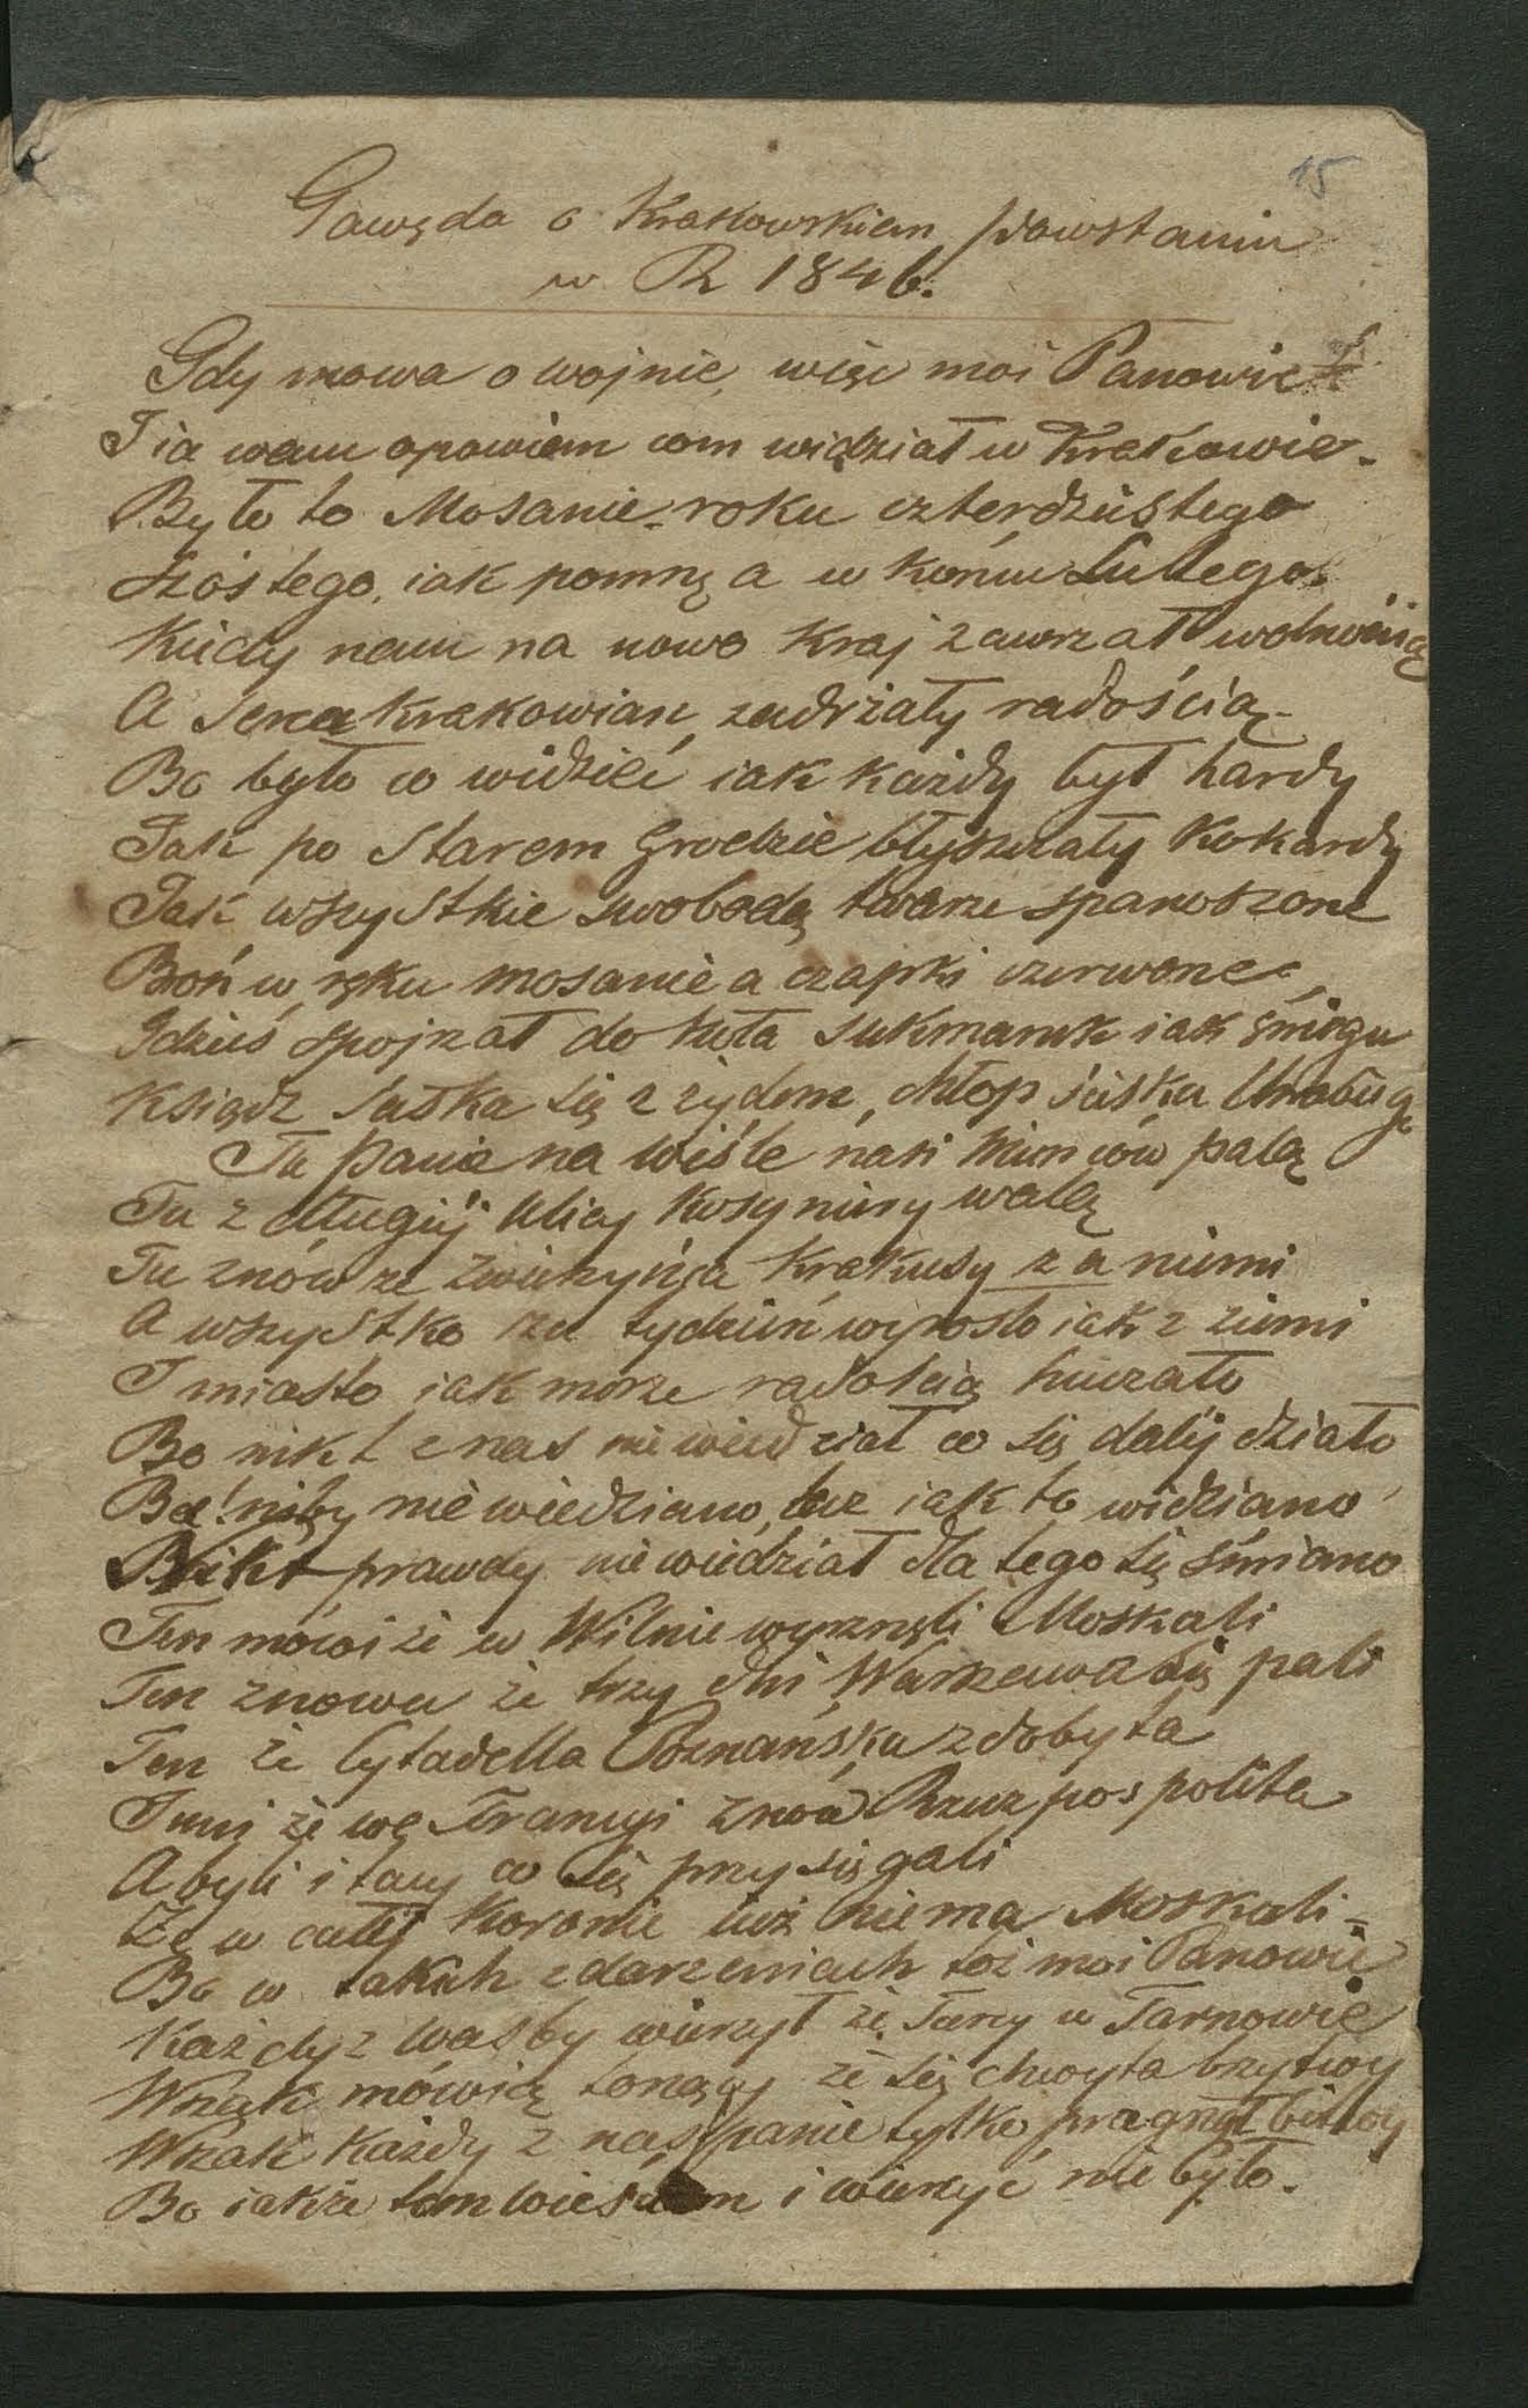 15
Gawęda o Krakowskiem powstaniu
w R 1846.
Gdy mowa o wojnie, więc moi Panowie
I ia wam opowiem com widział w Krakowie.
Było to Mosanie roku czterdziestego
szóstego, iak pomnę a w końcu Lutego.
Kiedy nam na nowo Kraj zawrzał wolnością
A serca Krakowian, zadrżały radością
Bo było co widzieć iak każdy był hardy
Jak po Starem Grodzie błyszczały Kokardy
Jak wszystkie swobodą twarze spanoszone
Broń w ręku mosanie a czapki czerwone
Gdzieś spojrzał do koła sukmanek iak śniegu
Ksiądz ściska się z żydem, chłop ściska
Tu Panie na Wiśle nasi Niemców palą
Tu z długiéj Ulicy Kosyniery walą
Tu znów ze Zwierzyńca Krakusy za niemi
A wszystko za tydzień wyrosło iak z ziemi
I miasto iak morze radością huczało
Bo nikt z nas nie wiedział co się daléj działo
Ba! niby nie wiedziano, lecz iak to widziano
Nikt prawdy nie wiedział dla tego się śmiano
Ten mówi że w Wilnie wyrznęli Moskali
Ten znowu że trzy dni Warszawa się pali
Ten że Cytadella Poznańska zdobyta
Inni że we Francyi znów Rzecz pospolita
A byli i tacy co się przysięgali
Że w całéj Koronie iuż niema Moskali
Bo w takich zdarzeniach toż moi Panowie
Każdy z Was by wierzył że Tacy w Tarnowie
Wszak mówią tonący że się chwyta brzytwy
Wszak każdy z nas panie tylko pragnął bitwy
Bo iakże tom wieściom i wierzyć nie było.